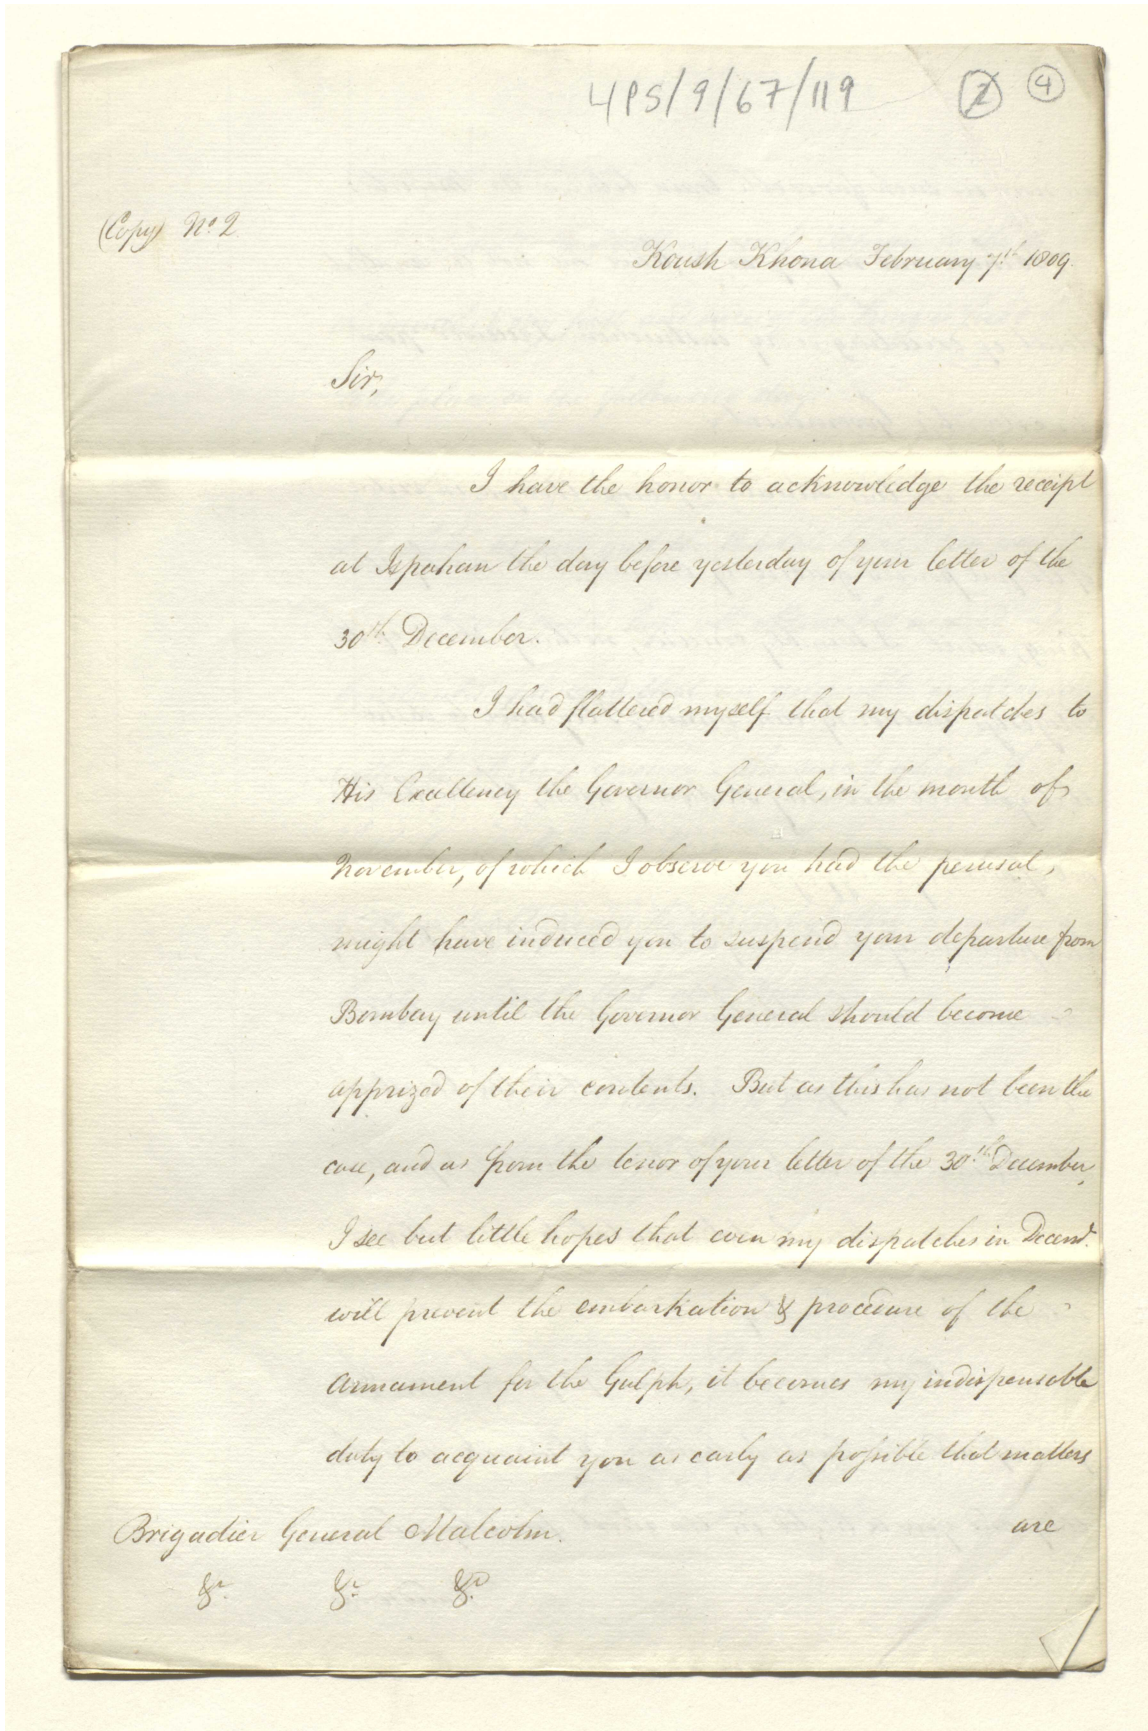 4PS/9/67/119 2 4
(Copy) No. 2
Koush Khona February 7th 1809.
Sir,
I have the honor to acknowledge the receipt
at Ispahan the day before yesterday of your letter of the
30th December.
I had flattered myself that my dispatches to
His Excellency the Governor General, in the month of
November, of which I observe you had the perusal,
might have induced you to suspend your departure from
Bombay until the Governor General should become
apprized of their contents. But as this has not been the
case, and as from the tenor of your letter of the 30th December,
I see but little hopes that even my dispatches in Decemr.
will prevent the embarkation & procedure of the
Armament for the Gulph, it becomes my indispensable
duty to acquaint you as early as possible that matters
are
Brigadier General Malcolm.
&c. &c. &c.